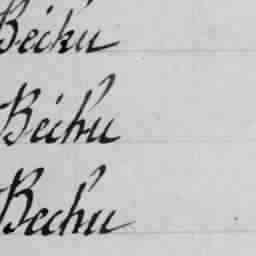 Béchu
Béchu
Bechu